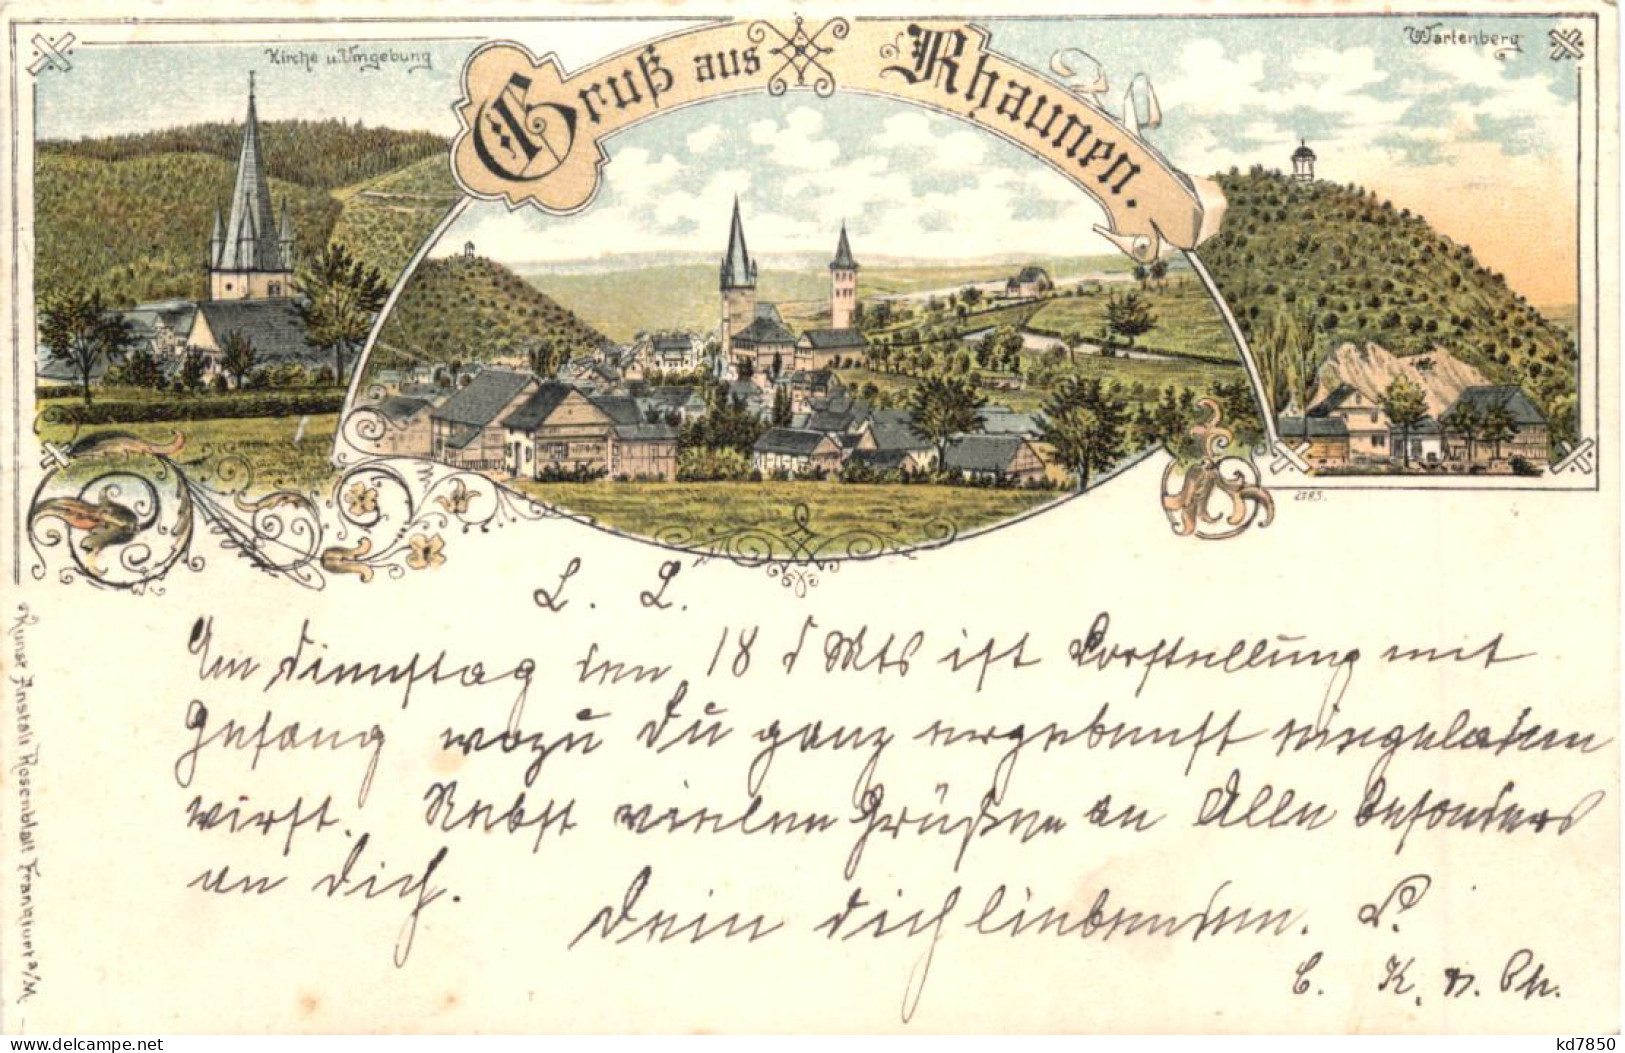 Kirche u. Umgebung
Gruß aus Rhaunen.
Wartenberg
2183.
L. L.
Am Dienstag den 18 d Mts ist Vorstellung mit
Gesang wozu Du ganz ergebenst eingeladen
wirst. Nebst vielen Grüßen an Alle besonders
an Dich.
Dein dich liebender
C. K. n. Ph.
Kunst Anstalt Rosenblatt Frankfurt a/M.
kd7850